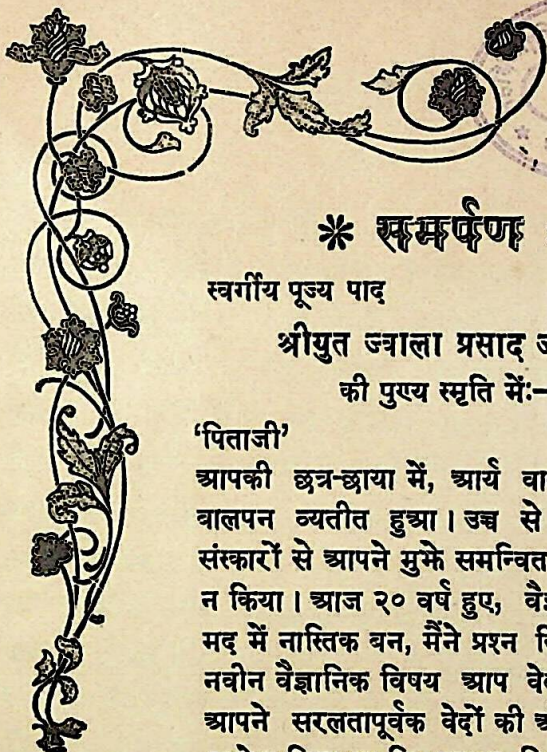 * समर्पण
स्वर्गीय पूज्य पाद
श्रीयुत ज्वाला प्रसाद
की पुण्य स्मृति में:-
‘पिताजी’
आपकी छत्र-छाया में, आर्य
वालपन व्यतीत हुआ। उच्च से
संस्कारों से आपने मुझे समन्वित
न किया। आज २० वर्ष हुए,
मद में नास्तिक बन, मैंने प्रश्न
नवीन वैज्ञानिक विषय आप
आपने सरलतापूर्वक वेदों की